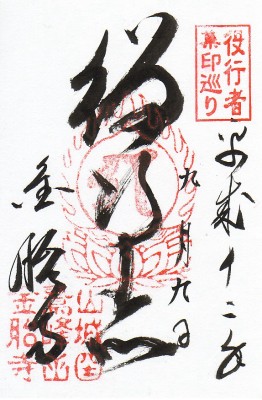 役行者
印巡り
平成十二年
九月九日
役行者
金胎寺
山城国
鷲峰山
金胎寺